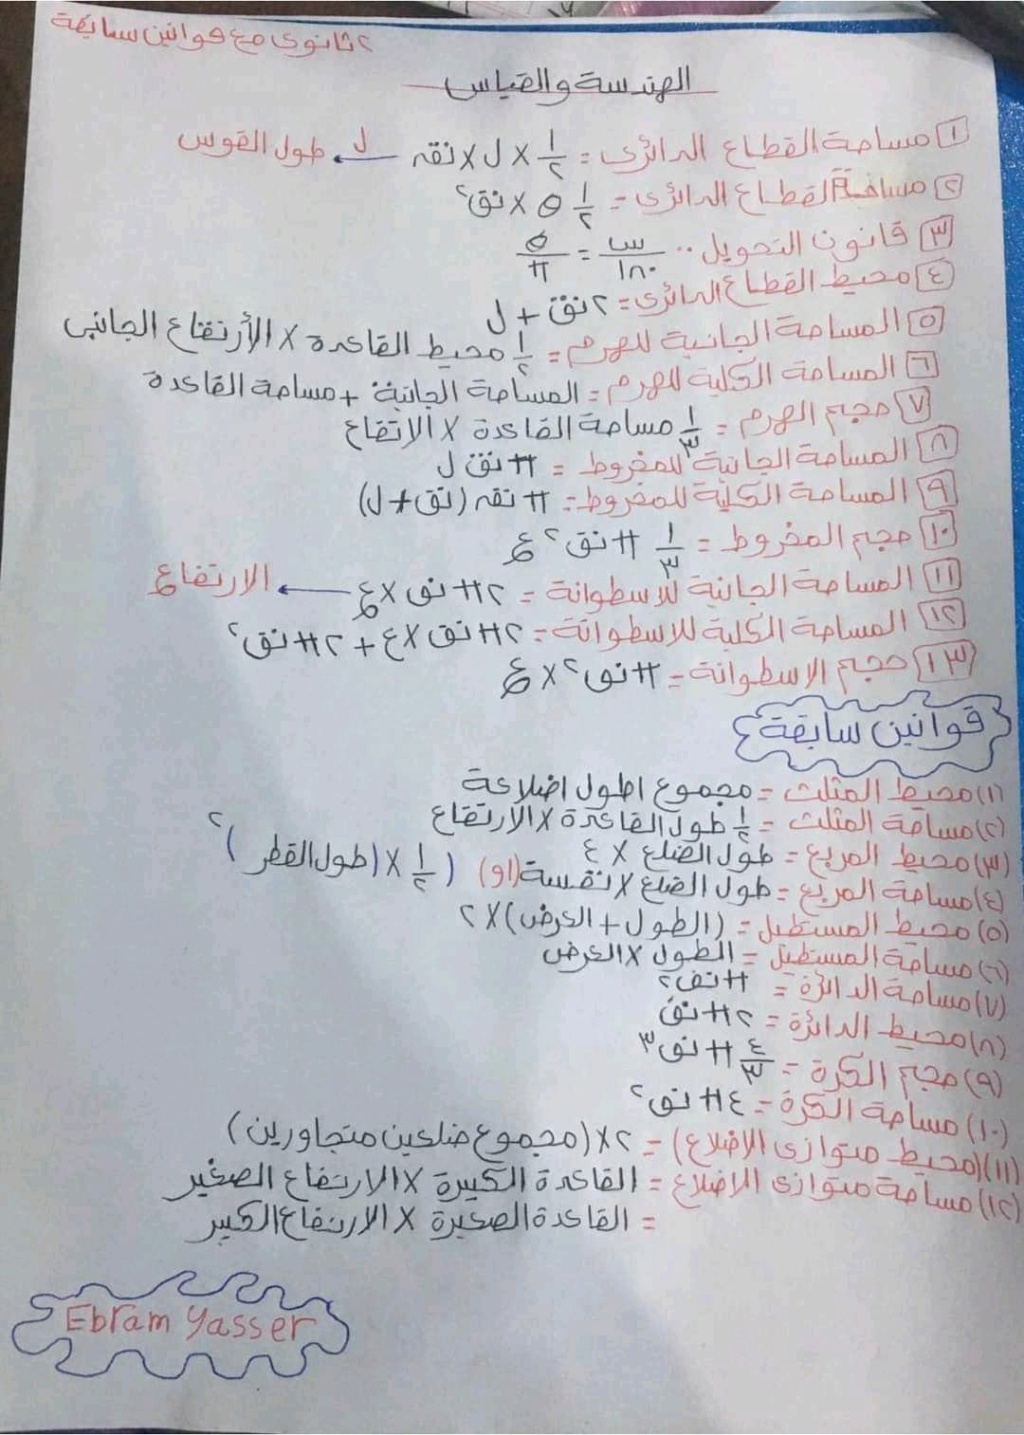 ٢ ثانوى مع قوانين سابقة
الهندسة والقياس
١ مساحة القطاع الدائرى = ١/٢ × ل × نقه ل ← طول القوس
٢ مساحة القطاع الدائرى = ١/٢ θ × نق٢
٣ قانون التحويل .. س/١٨٠ = θ/π
٤ محيط القطاع الدائرى = ٢ نق + ل
٥ المساحة الجانبية للهرم = ١/٢ محيط القاعدة × الأرتفاع الجانبى
٦ المساحة الكلية للهرم = المساحة الجانبية + مساحة القاعدة
٧ حجم الهرم = ١/٣ مساحة القاعدة × الاتفاع
٨ المساحة الجانبية للمخروط = π نق ل
٩ المساحة الكلية للمخروط = π نقه (نق + ل)
١٠ حجم المخروط = ١/٣ π نق٢ ع
١١ المساحة الجانبية للاسطوانة = ٢π نق × ع ← الارتفاع
١٢ المساحة الكلية للاسطوانة = ٢π نق × ع + ٢π نق٢
١٣ حجم الاسطوانة = π نق٢ × ع
قوانين سابقة
(١) محيط المثلث = مجموع اطول اضلاعة
(٢) مساحة المثلث = ١/٢ طول القاعدة × الارتفاع
(٣) محيط المربع = طول الضلع × ٤
(٤) مساحة المربع = طول الضلع × نفسة (او) (١/٢ × (طول القطر)٢
(٥) محيط المستطيل = (الطول + العرض) × ٢
(٦) مساحة المستطيل = الطول × العرض
(٧) مساحة الدائرة = π نق٢
(٨) محيط الدائرة = ٢π نق
(٩) حجم الكرة = ٤/٣ π نق٣
(١٠) مساحة الكرة = ٤π نق٢
(١١) (محيط متوازى الاضلاع) = ٢ × (مجموع ضلعين متجاورين)
(١٢) مساحة متوازى الاضلاع = القاعدة الكبيرة × الارتفاع الصغير
= القاعدة الصغيرة × الارتفاع الكبير
Ebram Yasser